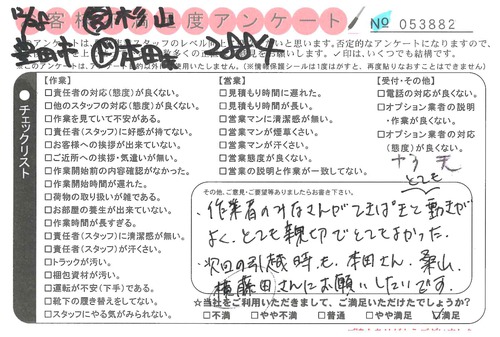 お客様満足度アンケート
№ 053882
※このアンケートは、アンケート目的以外は使用いたしません。(※情報保護シールは1度はがすと、再度貼りなおすことはできません)
チェックリスト
【作業】
□責任者の対応(態度)が良くない。
□他のスタッフの対応(態度)が良くない。
□作業を見ていて不安がある。
□責任者(スタッフ)に好感が持てない。
□お客様への挨拶が出来ていない。
□ご近所への挨拶・気遣いが無い。
□作業開始前の内容確認がなかった。
□作業開始時間が遅れた。
□荷物の取り扱いが雑である。
□お部屋の養生が出来ていない。
□作業時間が長すぎる。
□責任者(スタッフ)に清潔感が無い。
□責任者(スタッフ)が汗くさい。
□トラックが汚い。
□梱包資材が汚い。
□運転が不安(下手)である。
□靴下の履き替えをしてない。
□スタッフにやる気がみられない。
【営業】
□見積もり時間に遅れた。
□見積もり時間が長い。
□営業マンに清潔感が無い。
□営業マンが煙草くさい。
□営業マンが汗くさい。
□営業態度が良くない。
□営業の説明と作業が一致してない。
【受付・その他】
□電話の対応が良くない。
□オプション業者の説明
・作業が良くない。
□オプション業者の対応
(態度)が良くない。
その他、ご意見・ご要望等ありましたらお書き下さい。
とても
・作業者のみなさんがてきぱきと動きが
よく、とても親切でとてもよかった。
・次回の引越時も、本田さん、桑山、
横藤田さんにお願いしたいです。
☆当社をご利用いただきまして、ご満足いただけたでしょうか?
□不満 □やや不満 □普通 □やや満足 ☑満足